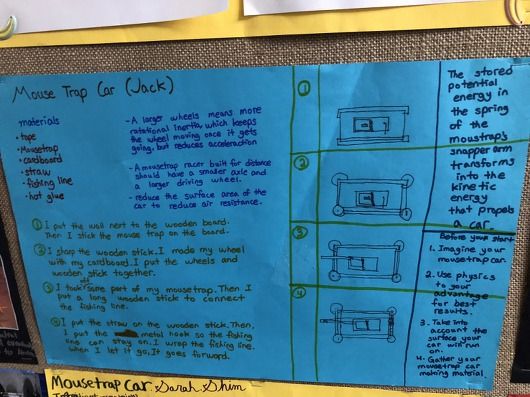 Mouse Trap Car (Jack)
materials
• tape
• Mousetrap
• cardboard
• straw
• fishing line
• hot glue
- A larger wheels means more
rotational inertia, which keeps
the wheel moving once it gets
going, but reduces acceleraction
- A mousetrap racer built for distance
should have a smaller axle and
a larger driving wheel.
- reduce the surface area of the
car to reduce air resistance.
① I put the wall next to the wooden board.
Then I stick the mouse trap on the board.
② I sharp the wooden stick. I made my wheel
with my cardboard. I put the wheels and
wooden stick together.
③ I took off some part of my mousetrap. Then I
put a long wooden stick to connect
the fishing line.
④ I put the straw on the wooden stick. Then,
I put the metal hook so the fishing
line can stay on. I wrap the fishing line.
when I let it go, It goes forward.
①
②
③
④
The stored
potential
energy in
the spring
of the
moustrap's
snapper arm
transforms
into the
kinetic
energy
that propels
a car.
Before your start
1. Imagine your
mousetrap car.
2. Use physics
to your
advantage
for best
results.
3. Take into
account the
surface your
car will run
on.
4. Gather your
mousetrap car
making material.
Mousetrap Car Sarah Shim